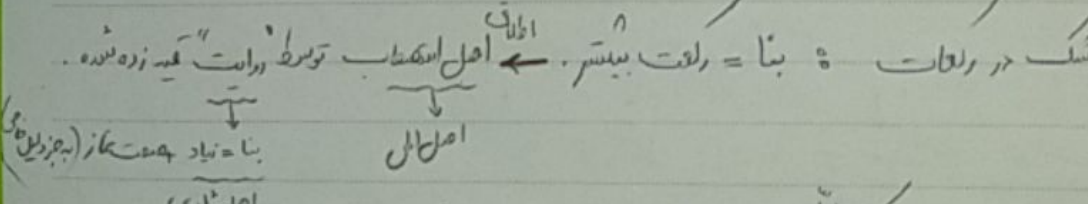 شک در رکعات : بنا = رکعت بیشتر. ← اصل استصحاب توسط "روایت" قید زده شده.
اطلاق
اصل اولی
بنا = زیاد صحت نماز (به جز دلیل خاص)